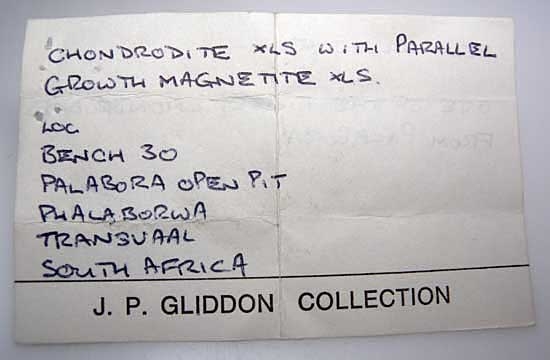 CHONDRODITE XLS WITH PARALLEL
GROWTH MAGNETITE XLS.
LOC
BENCH 30
PALABORA OPEN PIT
PHALABORWA
TRANSVAAL
SOUTH AFRICA
J. P. GLIDDON COLLECTION